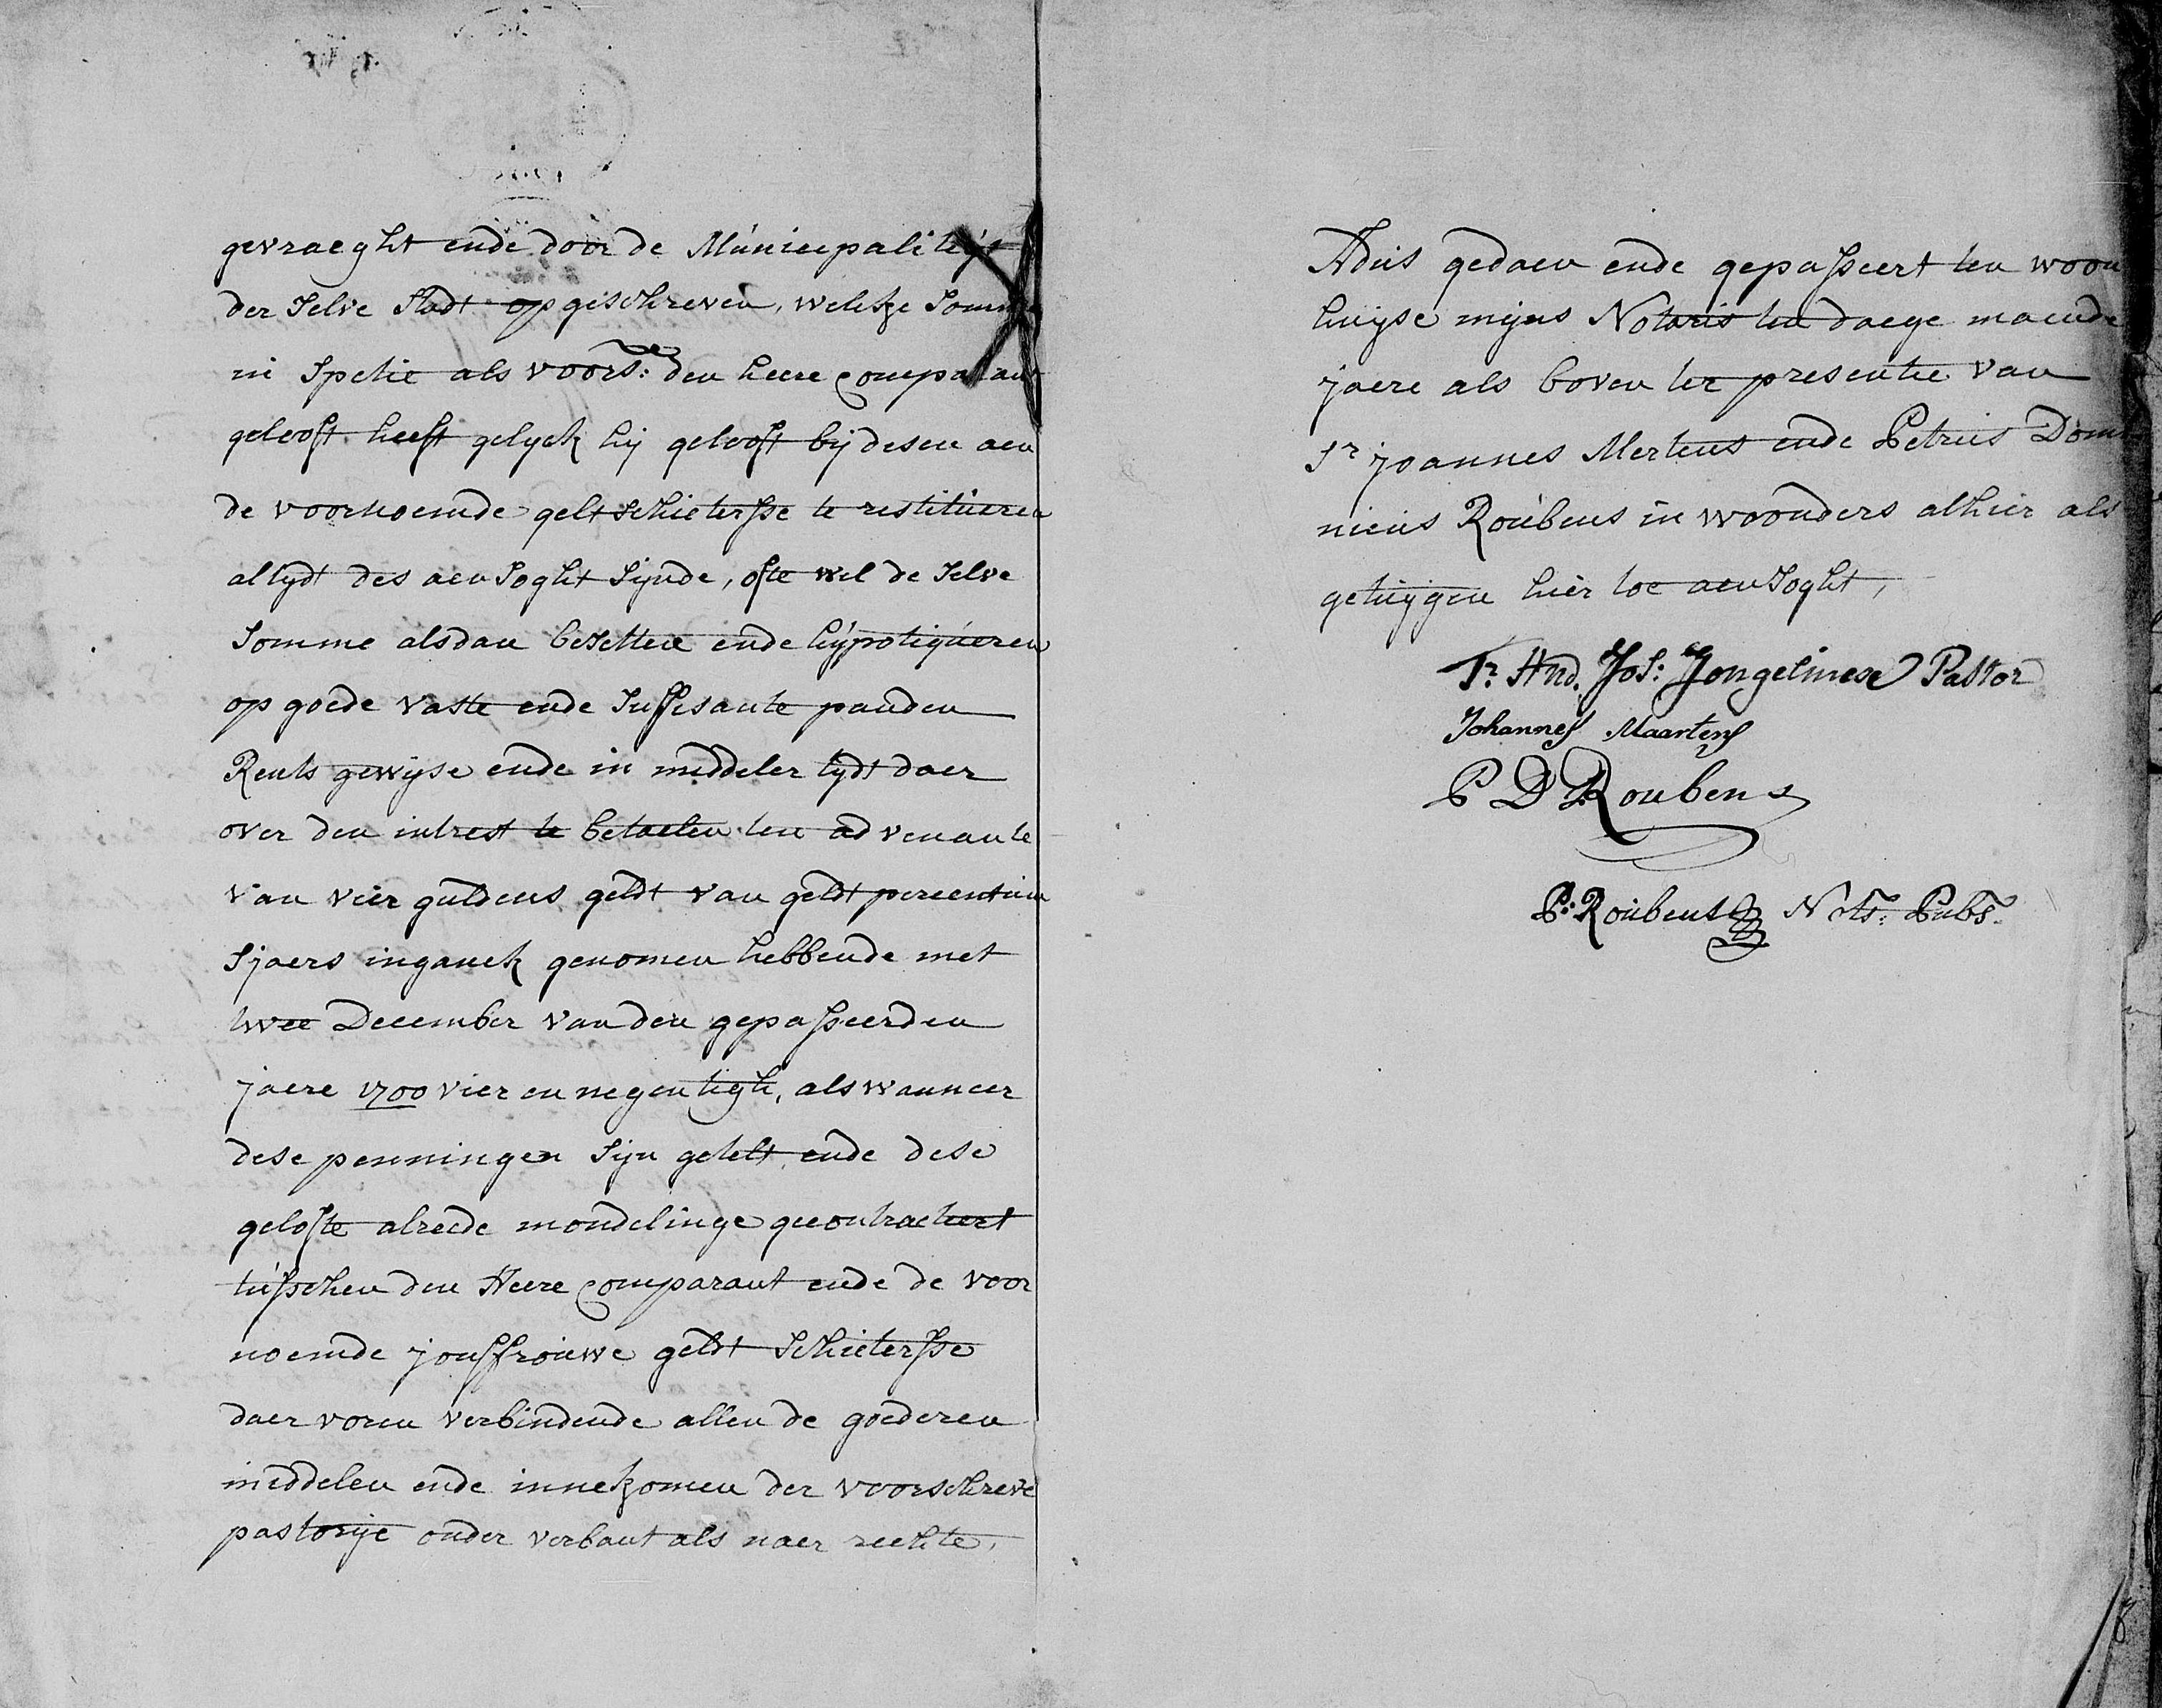 gevraeght ende door de Municipaliteijt
der selve stadt opgeschreven, welcke somme
in spetie als voors: den heere comparant
gelooft heeft gelyck hij gelooft bij desen aen
de voornoemde geltschietersse te restitueren
altydt des aensoght sijnde, ofte wel de selve
somme alsdan besetten ende hijpotiqueren
op goede vaste ende suffisante panden
Rentsgewijse ende in middeler tydt daer
over den intrest te betaelen ten advenante
van vier guldens geldt van geldt percentum
sjaers inganck genomen hebbende met
twee December vanden gepasseerden
jaere 1700 vier en negentigh, als wanneer
dese penningen sijn getelt ende dese
gelofte alreede mondelinge gecontracteert
tusschen den Heere Comparant ende de voor
noemde jouffrouwe geldt schietersse
daer voren verbindende allen de goederen
middelen ende innekomen der voorschreve
pastorije onder verbant als naer rechte,
Aldus gedaen ende gepasseert ten woon
huijse mijns Notaris ten daege maende
jaere als boven ter presentie van
Sr joannes Mertens ende Petrus Domi
nicus Roubens inwoonders alhier als
getuijgen hier toe aensoght,
Fr. And. Jos: Jongelinx Pastor
Johannes Maartens
P D Roubens
P: Roubens Nots: Pubs.